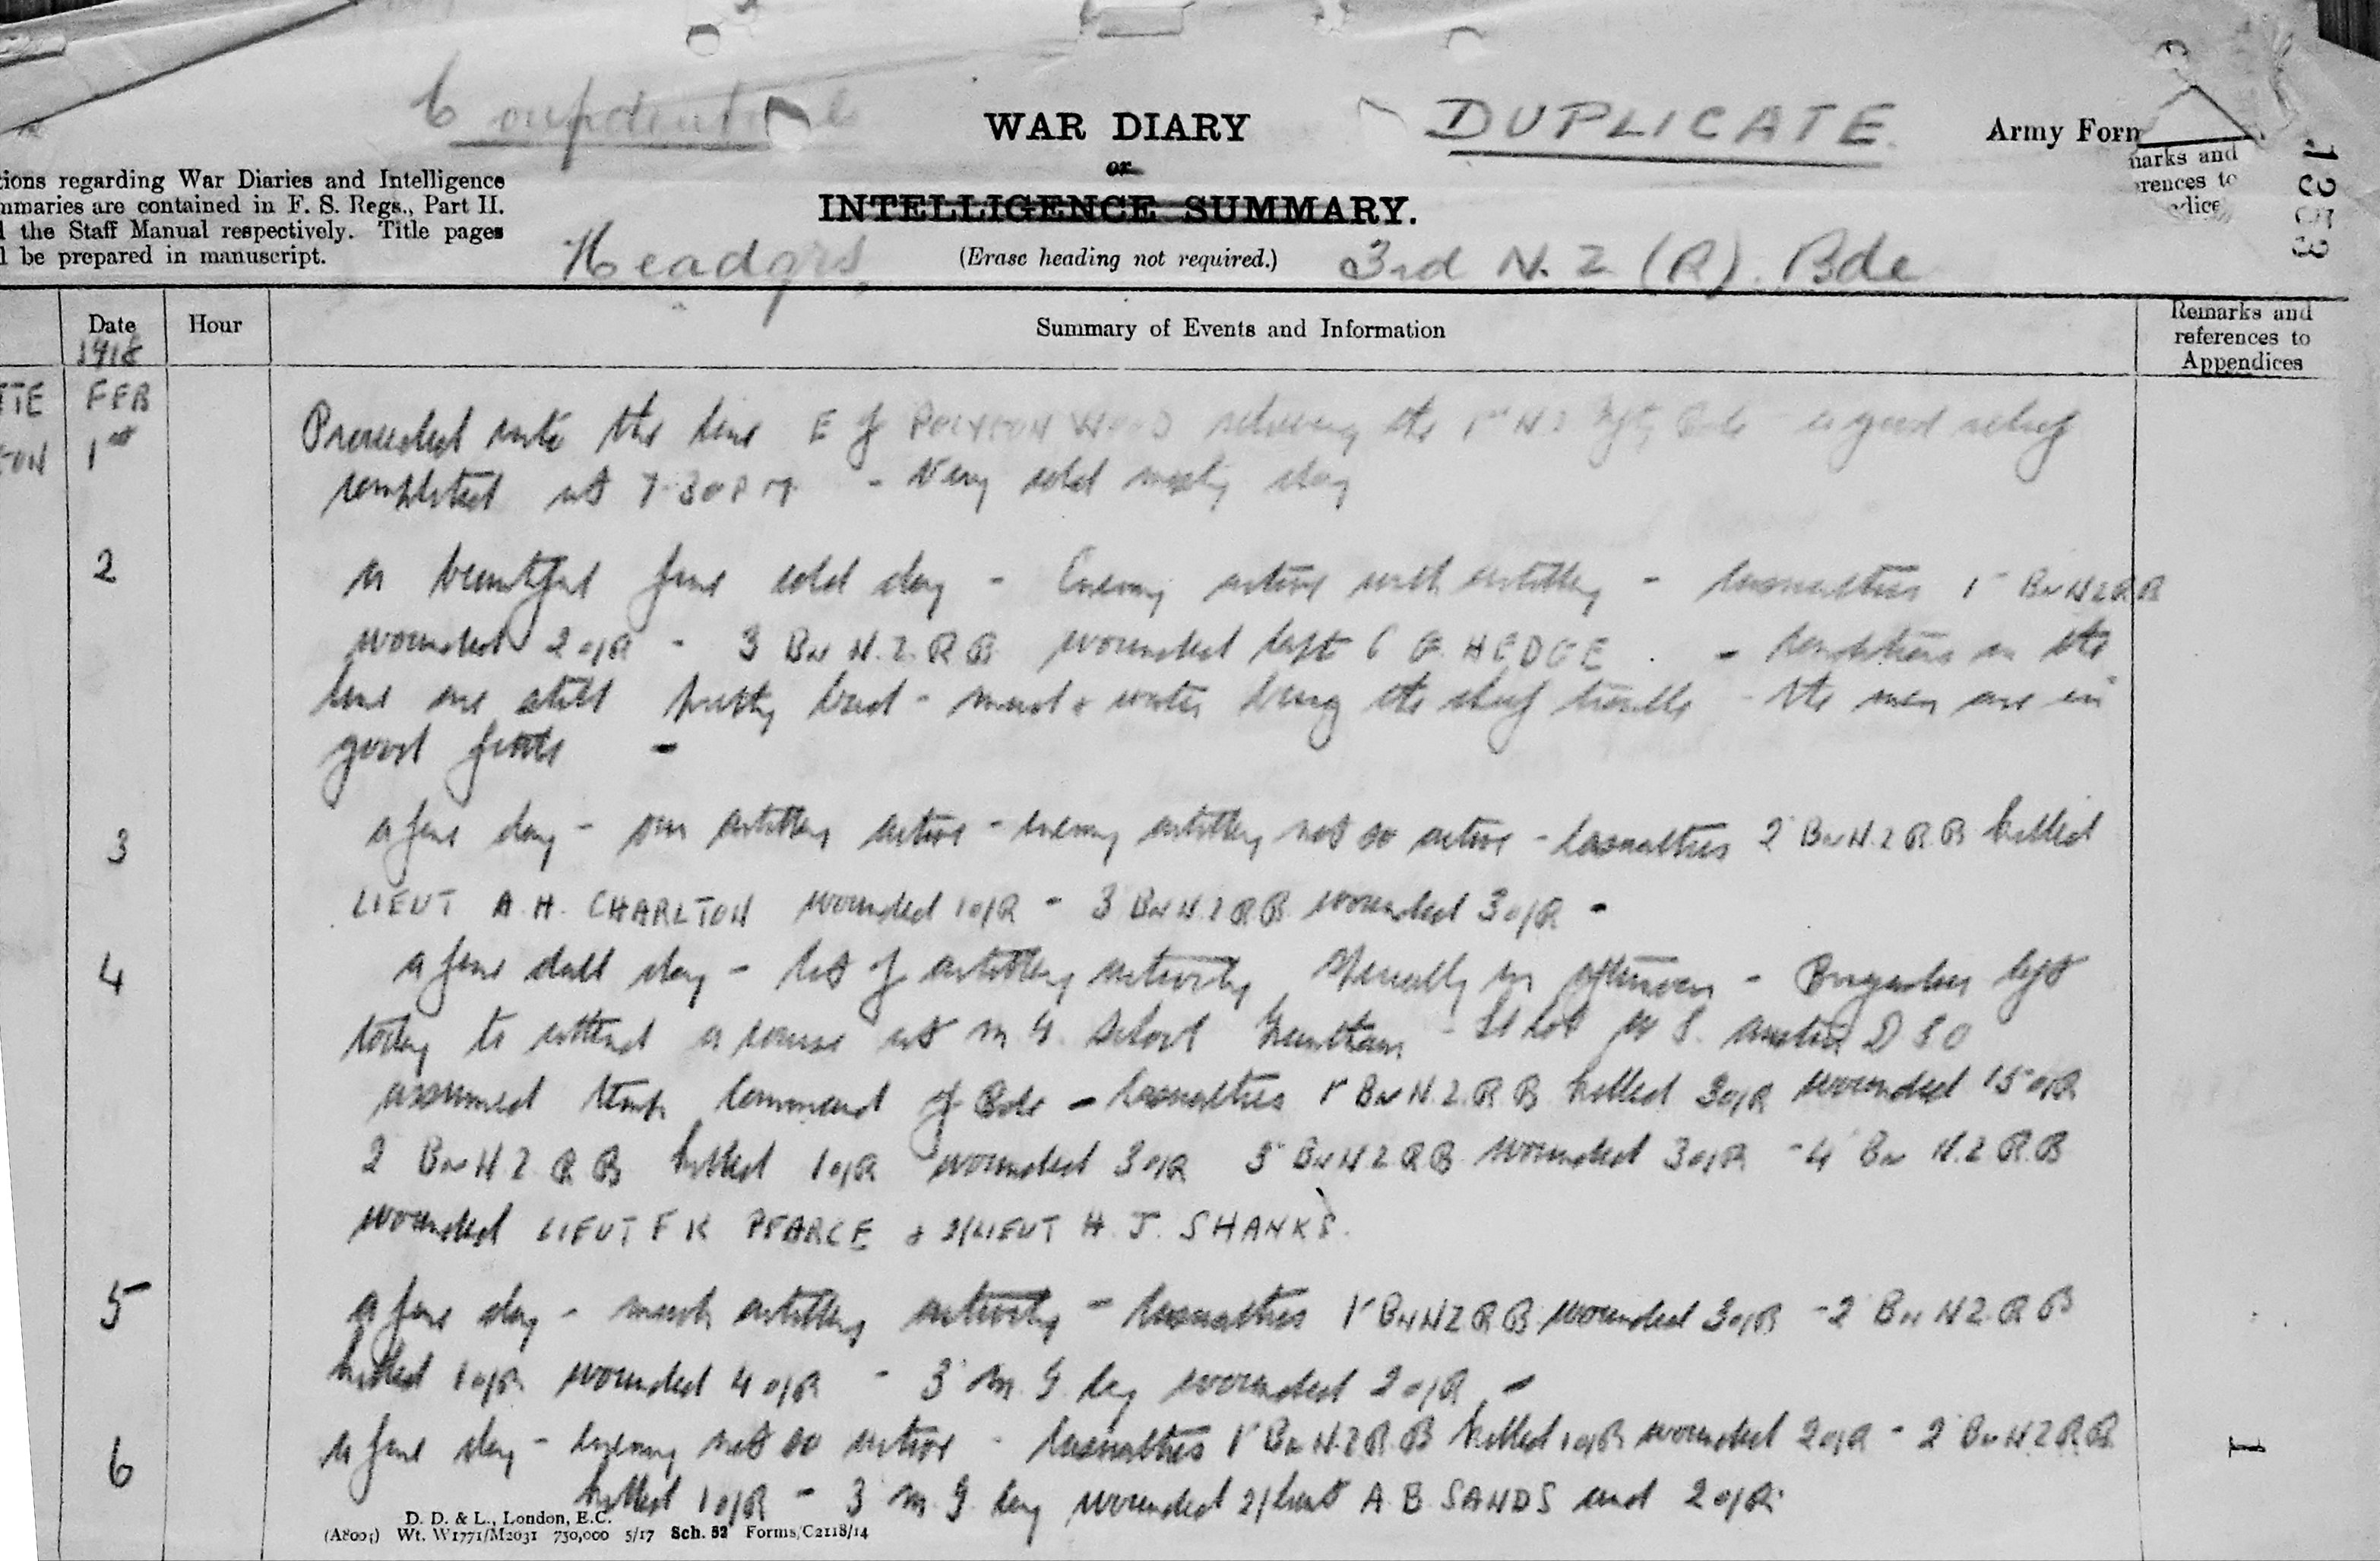 Confidential
WAR DIARY
DUPLICATE.
Army Form
or
tions regarding War Diaries and Intelligence
mmaries are contained in F. S. Regs., Part II.
the Staff Manual respectively. Title pages
l be prepared in manuscript.
INTELLIGENCE SUMMARY.
(Erase heading not required.)
marks and
rences to
dice
1353
Headqrs
3rd N. Z (R). Bde
Date Hour Summary of Events and Information Remarks and references to Appendices
1918
TTE FEB
1st Proceeded into the line E of POLYGON WOOD relieving the 1st N Z Infty Bde - a good relief
completed at 7.30 PM - Very cold misty day
2 a beautiful fine cold day - Enemy active with artillery - Casualties 1 Bn N Z R B
wounded 2 o/R - 3 Bn N.Z. R B wounded Capt C G. HEDGE. - Conditions in the
line are still pretty bad - mud & water being the chief trouble - the men are in
good fettle -
3 a fine day - our artillery active - enemy artillery not so active - Casualties 2 Bn N.Z.R.B killed
LIEUT A. H. CHARLTON wounded 1 o/R - 3 Bn N.Z R B. wounded 3 o/R -
4 a fine dull day - lot of artillery activity specially in afternoon - Brigadier left
today to attend a course at M. G. School Grantham - Lt Col W S. Austin D S O
assumed temp command of Bde - Casualties 1 Bn N.Z.R.B killed 3 o/R wounded 15 o/R
2 Bn N.Z. R B killed 1 o/R wounded 3 o/R 3 Bn N Z R B wounded 3 o/R - 4 Bn N.Z R.B
wounded LIEUT F K PEARCE & 2/LIEUT H. J. SHANKS.
5 a fine day - much artillery activity - Casualties 1 Bn N Z R B wounded 3 o/R - 2 Bn N Z. R B
killed 1 o/R wounded 4 o/R - 3 M. G. Coy wounded 2 o/R -
6 a fine day - Enemy not so active - Casualties 1 Bn N.Z.R.B killed 1 o/R wounded 2 o/R - 2 Bn N Z R.B.
killed 1 o/R - 3 M. G. Coy wounded 2/Lieut A. B. SANDS and 2 o/R.
1
D. D. & L., London, E.C.
Wt. W1771/M2031 750,000 5/17 Sch. 52 Forms/C2118/14